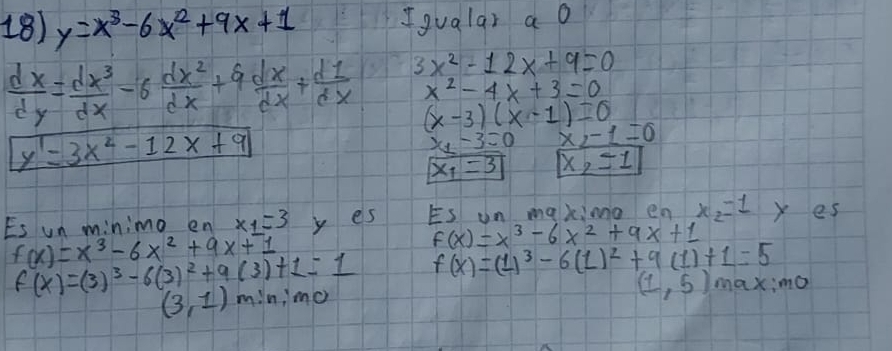 18) y=x³-6x²+9x+1
dx/dy=dx³/dx-6 dx²/dx+9 dx/dx+d1/dx
y'=3x²-12x+9
Igualar a 0
3x²-12x+9=0
x²-4x+3=0
(x-3)(x-1)=0
x₁-3=0 x₂-1=0
x₁=3 x₂=1
Es un minimo en x₁=3 y es
f(x)=x³-6x²+9x+1
f(x)=(3)³-6(3)²+9(3)+1=1
(3,1) minimo
Es un maximo en x₂=1 y es
f(x)=x³-6x²+9x+1
f(x)=(1)³-6(1)²+9(1)+1=5
(1,5) maximo